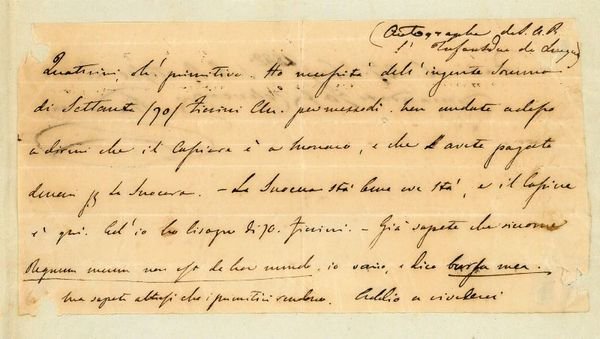 (Autographe de S. A. R.
l'Infant Duc de Lucques)
Quattrini ch'è primitivo. Ho necessità dell'ingente somma
di Settanta /70/ Fiorini per mezzodì. non andate adesso
a dirmi che il Cassiere è a Monaco, e che l'avete pagato
la Suocera. – La Suocera stà bene ove stà, e il Cassiere
è qui. Ed io ho bisogno di 70. Fiorini. – Già sapete che siccome
Regnum meum non est de hoc mundo, io sono, e dico bursa mea.
ma sapete altresì che i primitivi vendono. Addio a rivederci